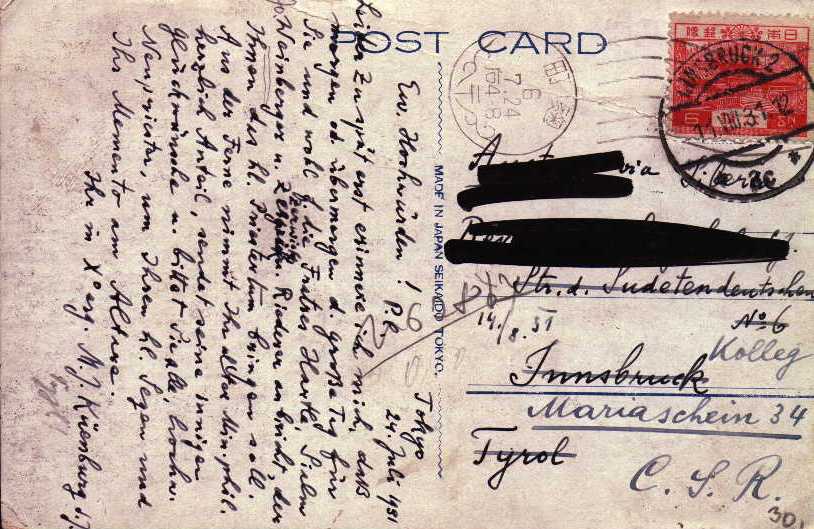 POST CARD
MADE IN JAPAN SEIKAIDO TOKYO.
Tokyo
24. Juli 1931
Ew. Hochwürden! P.R.
Leider zu spät erst erinnere ich mich, daß
morgen od. übermorgen d. große Tag für
Sie und wohl f. die Fratres
Weinberger u. Riederer anbricht, der
Ihnen das hl. Priestertum bringen soll.
Aus der Ferne nimmt Ihr alter Min. phil.
herzlich Anteil, sendet seine innigen
Glückwünsche u. bittet Sie alle, hochw.
Neupriester, um Ihren hl. Segen und
Ihr Memento am Altare.
Ihr in Xo erg. M. J. Küenburg S.J.
6
7.24
INNSBRUCK 2
via Siberia
Str. d. Sudetendeutschen
No 6
14./8. 31
Kolleg
Innsbruck
Mariaschein 34
Tyrol
C. S. R.
30,